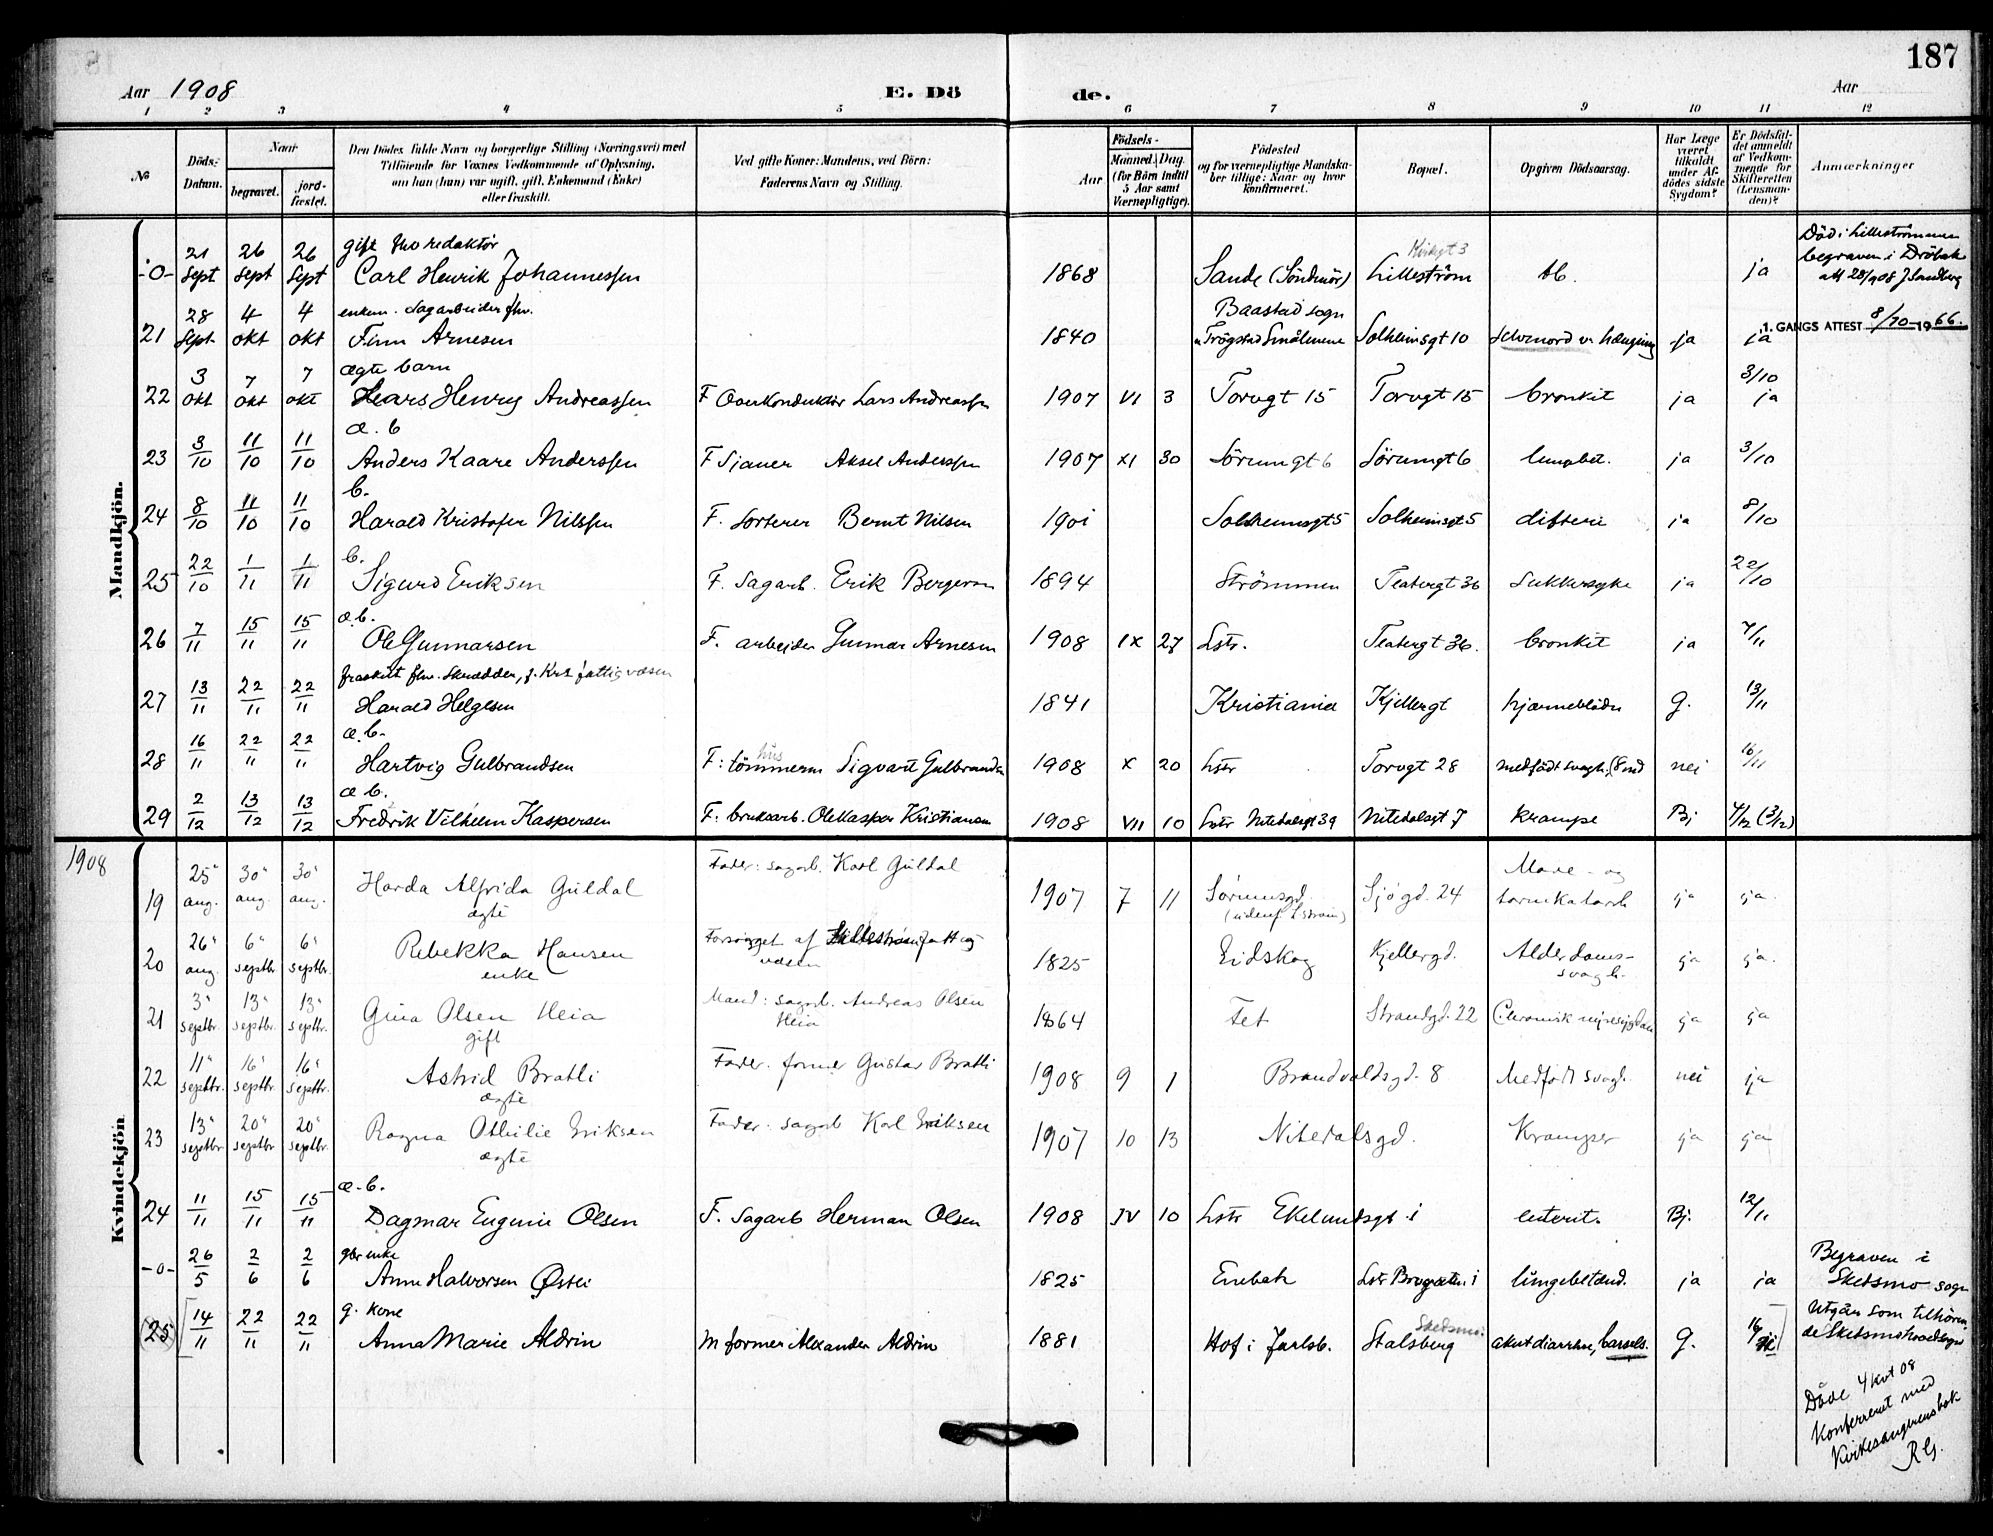 187
Aar 1908 E. Dö de. Aar
1 2 3 4 5 6 7 8 9 10 11 12
No
Döds-Datum.
Naar
begravet.
jord-fæstet.
Den Dödes fulde Navn og borgerlige Stilling (Næringsvei) med
Tilföiende for Voxnes Vedkommende af Oplysning,
om han (hun) var ugift, gift, Enkemand (Enke)
eller fraskilt.
Ved gifte Koner: Mandens, ved Börn:
Faderens Navn og Stilling.
Födsels-
Aar
Maaned. Dag.
(for Börn indtil
5 Aar samt
Værnepligtige).
Födested
og for værnepligtige Mandska-
ber tillige: Naar og hvor
konfirmeret.
Bopæl.
Opgiven Dödsaarsag.
Har Læge
været
tilkaldt
under Af-
dödes sidste
Sygdom?
Er Dödsfal-
det anmeldt
af Vedkom-
mende for
Skifteretten
(Lensman-
den)?
Anmærkninger
Mandkjön.
-0- 21 Sept 26 Sept 26 Sept gift fhv redaktör Carl Henrik Johannessen 1868 Sande (Söndmör) Kirkegt 3 Lilleström tb. ja Död i Lilleströmmen begraven i Dröbak att 28/9 08 J Sandberg
21 28 Sept. 4 okt 4 okt enkem. Sagarbeider fhv. Finn Arnesen 1840 Baastad sogn Trögstad Smålenene Solheimsgt 10 Selvmord v. hængning ja ja 1. GANGS ATTEST 8/10-1966.
22 3 okt 7 okt 7 okt ægte barn Lars Henry Andreassen F Overkonduktör Lars Andreassen 1907 VI 3 Torvgt 15 Torvgt 15 bronkit ja 3/10 ja
23 3/10 11/10 11/10 æ. b Anders Kaare Anderssen F Sjauer Aksel Anderssen 1907 XI 30 Sörumgt 6 Sörumgt 6 lungbet. ja 3/10
24 8/10 11/10 11/10 b. Harald Kristofer Nilssen F. Sorterer Bernt Nilsen 1901 Solheimsgt 5 Solheimsgt 5 difteri ja 8/10
25 22/10 1/11 1/11 b. Sigurd Eriksen F. Sagarb. Erik Bergersen 1894 Strömmen Teatergt 36 Sukkersyke ja 22/10
26 7/11 15/11 15/11 æ.b. Ole Gunnarsen F. arbeider Gunnar Arnesen 1908 IX 27 Lstr. Teatergt 36. bronkit ja 7/11
27 13/11 22/11 22/11 fraskilt fhv. Skrædder, f. Krs fattigvæsen Harald Helgesen 1841 Kristiania Kjellergt hjerneblödn G. 13/11
28 16/11 22/11 22/11 æ.b. Hartvig Gulbrandsen F: hus tömmerm Sigvart Gulbrandsen 1908 X 20 Lstr Torvgt 28 medfödt svagh. (8 md nei 16/11
29 2/12 13/12 13/12 æ b. Fredrik Vilhelm Kaspersen F. bruksarb. Ole Kaspar Kristiansen 1908 VII 10 Lstr Nitedalsgt 39 Nitedalsgt 7 Krampe Bj 4/12 (3/12)
1908
Kvindekjön
19 25 aug. 30 aug. 30 aug. Harda Alfrida Guldal ægte Fader: sagarb. Karl Guldal 1907 7 11 Sørumsgd. (udenf. Lstrøm) Sjøgd. 24 Mave- og tarmkatarrh ja ja
20 26 aug. 6 septbr. 6 septbr. Rebekka Hansen enke Forsørget af Lillestrøm fattigvæsen 1825 Eidskog Kjellergd. Alderdoms-svagh. ja ja.
21 3 septbr. 13 septbr. 13 septbr. Gina Olsen Heia gift Mand: sagarb. Andreas Olsen Heia 1864 Fet Strandgd. 22 Chronisk nyresygdom ja ja
22 11 septbr. 16 septbr. 16 septbr. Astrid Bratli ægte Fader. former Gustav Bratli 1908 9 1 Brandvaldsgd. 8 Medfødt svagh. nei ja
23 13 septbr. 20 septbr. 20 septbr. Ragna Othilie Eriksen ægte Fader: sagarb Karl Eriksen 1907 10 13 Nitedalsgd. Kramper ja ja
24 11/11 15/11 15/11 æ. b. Dagmar Eugenie Olsen F. Sagarb Herman Olsen 1908 IV 10 Lstr Ekelundsgt 1 enterit. Bj. 12/11
-0- 26/5 2/6 2/6 gbr enke Anne Halvorsen Østli 1825 Enebak Lstr Brogaten 1 lungebetænd. ja ja Begraven i Skedsmo sogn
(25) 14/11 22/11 22/11 g. kone Anna Marie Aldrin M former Alexander Aldrin 1881 Hof i Jarlsb. Skedsmo. Stalsberg akut diarrhee, barsels. G. 16/11 Utgår som tilhörende Skedsmo hovedsogn
Döde 4 kvt 08
Konfereret med
Kirkesangerens bok
R G.